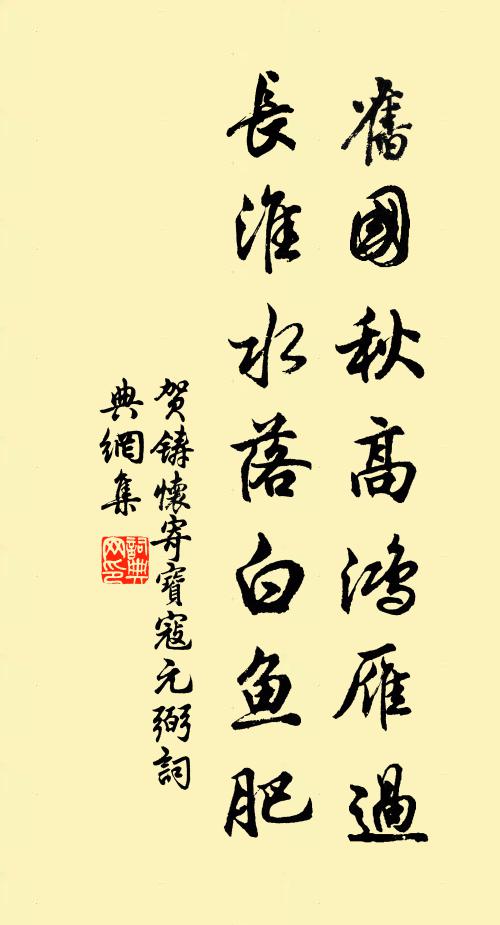 舊國秋高鸿雁過
長淮水落白鱼肥
贺鑄懷寄寶寇元弼詞
典網集
詞典网印